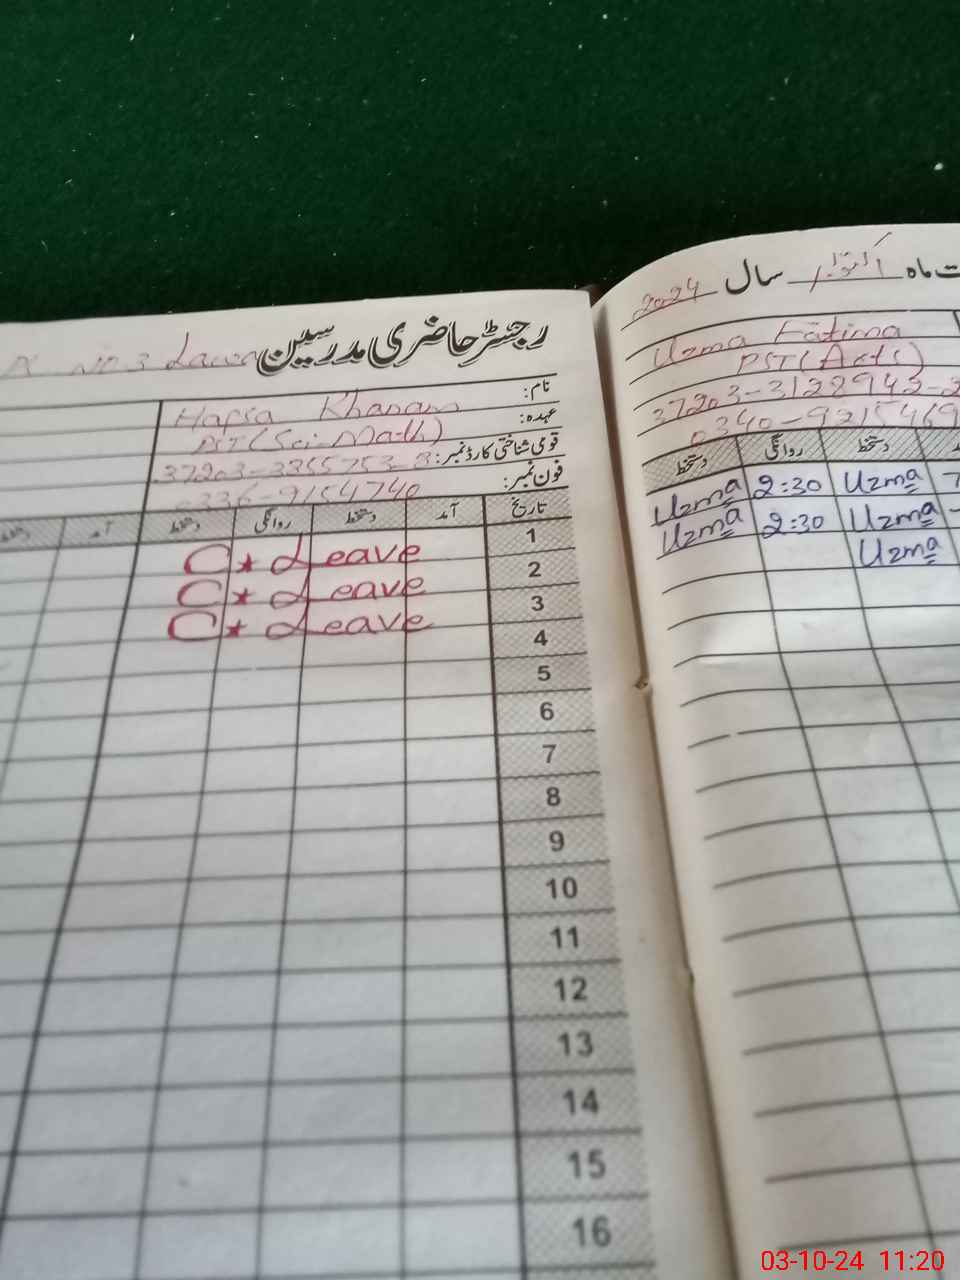 رجسٹر حاضری مدرسین
No 3 Lawa
نام:
Hafsa Khanam
عہدہ:
PST (Sci-Math)
قومی شناختی کارڈ نمبر:
37203-3355753-8
فون نمبر:
0336-9154740
تاریخ آمد دستخط روانگی دستخط آمد دستخط
1 C* Leave
2 C* Leave
3 C* Leave
4
5
6
7
8
9
10
11
12
13
14
15
16
ت ماہ اکتوبر سال 2024
Uzma Fatima
PST (Arts)
37203-3122942-2
0340-921546
دستخط روانگی دستخط
Uzma 2:30 Uzma 7
Uzma 2:30 Uzma
Uzma
03-10-24 11:20